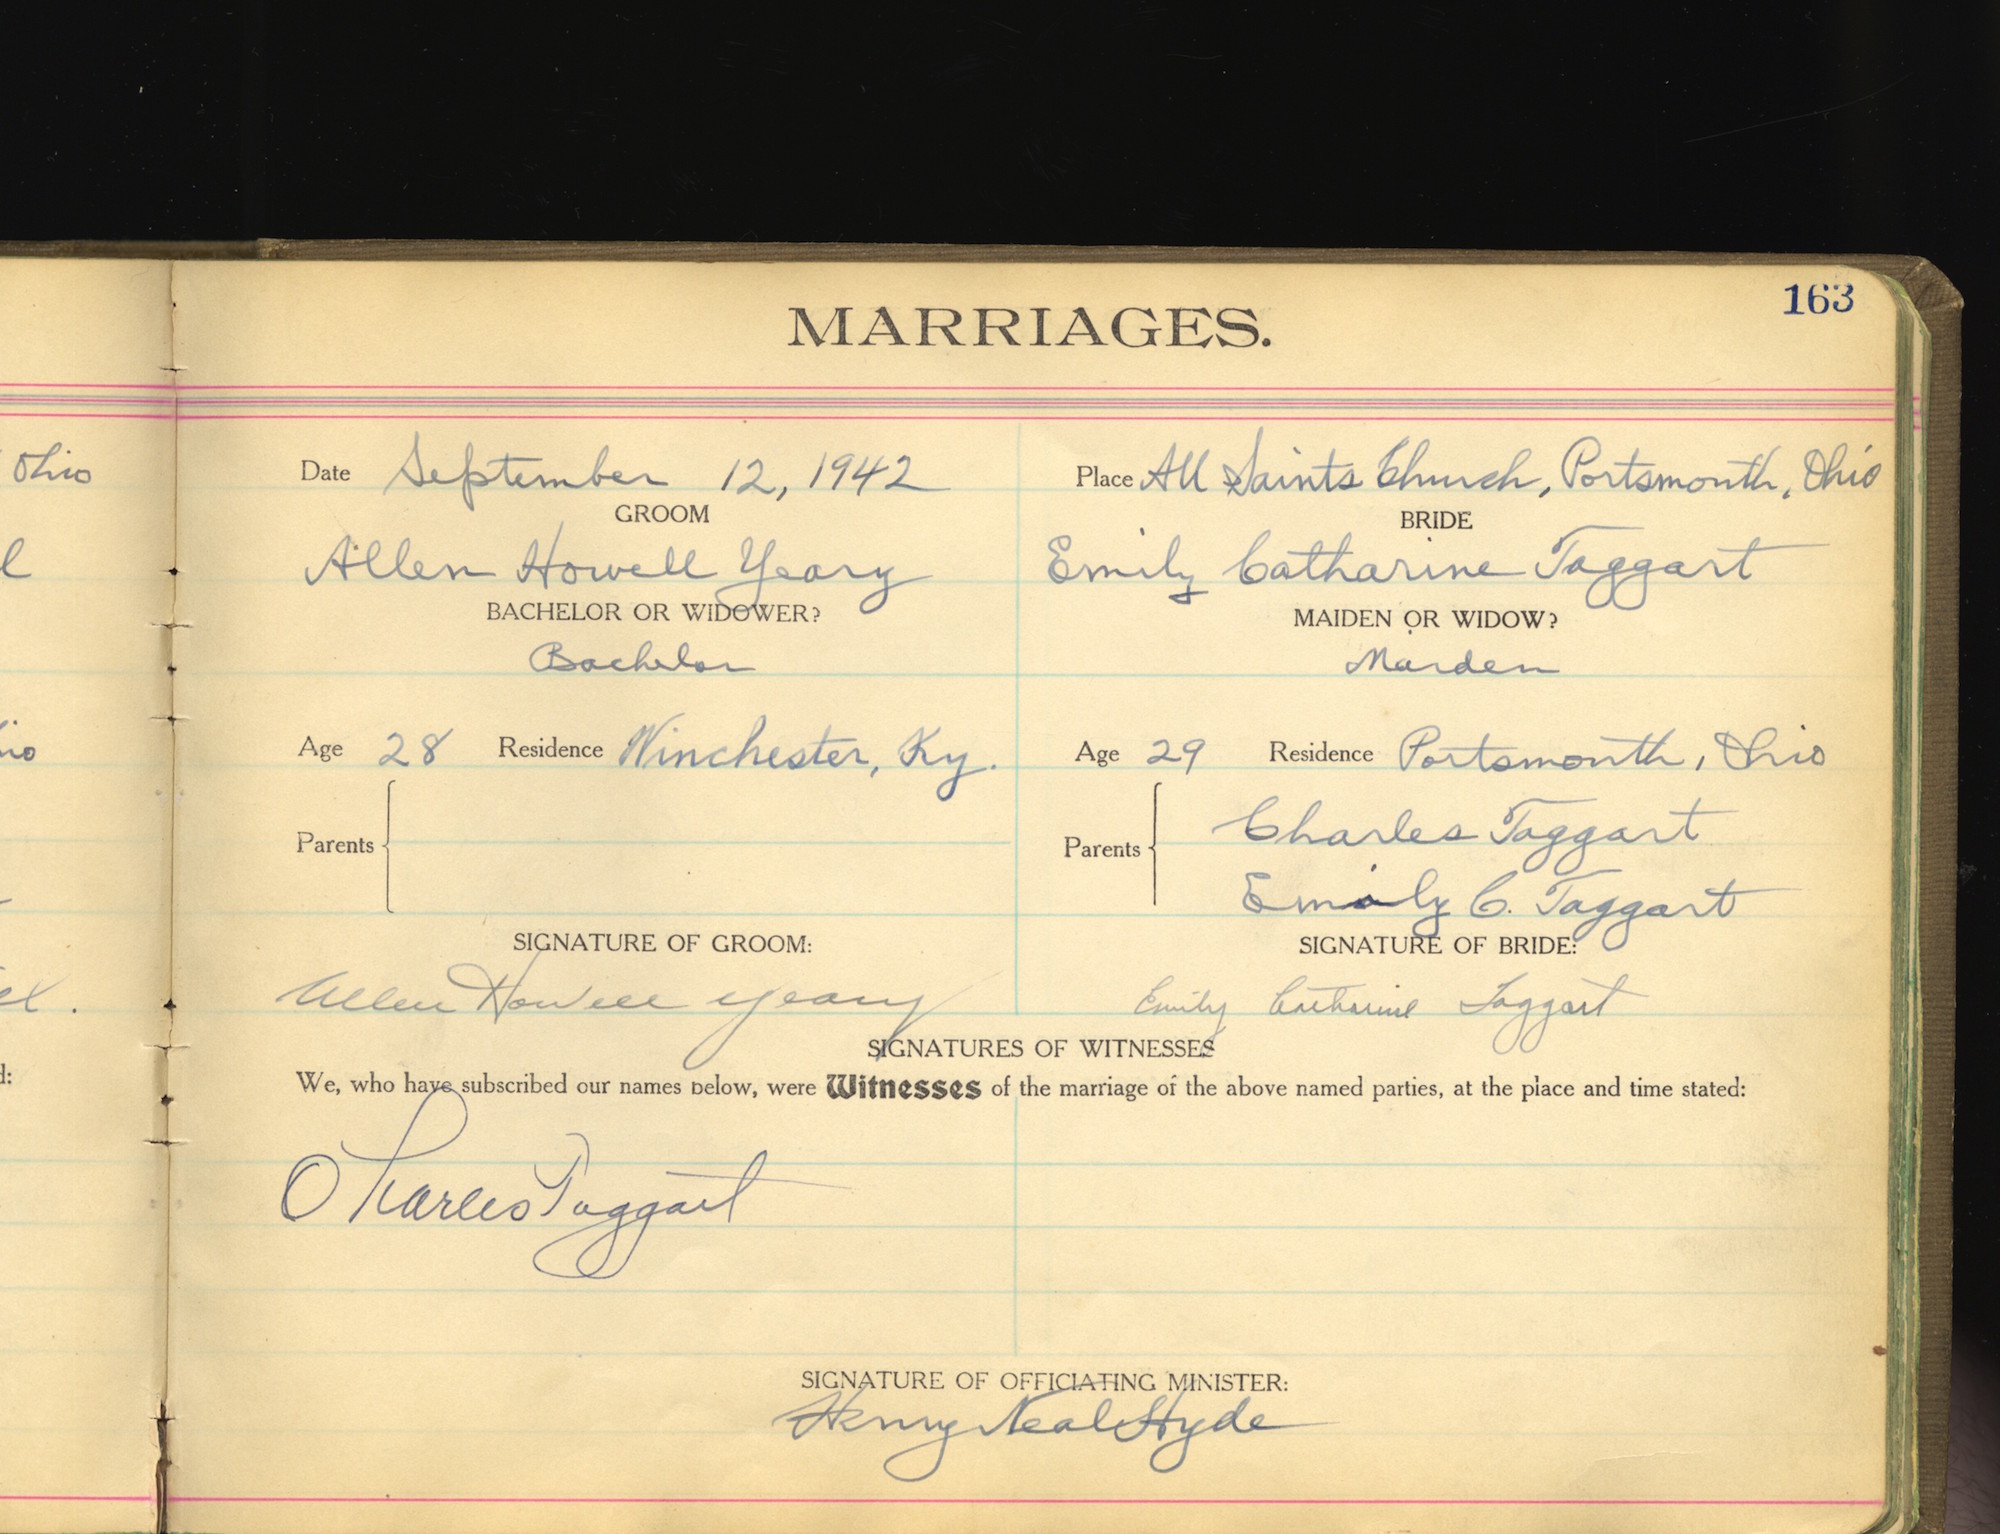 163
MARRIAGES.
Ohio
Date September 12, 1942 Place All Saints Church, Portsmouth, Ohio
GROOM BRIDE
Allen Howell Yeary Emily Catharine Taggart
BACHELOR OR WIDOWER? MAIDEN OR WIDOW?
Bachelor Maiden
Age 28 Residence Winchester, Ky. Age 29 Residence Portsmouth, Ohio
Parents Parents Charles Taggart
Emily C. Taggart
SIGNATURE OF GROOM: SIGNATURE OF BRIDE:
Allen Howell Yeary Emily Catharine Taggart
SIGNATURES OF WITNESSES
We, who have subscribed our names below, were Witnesses of the marriage of the above named parties, at the place and time stated:
Charles Taggart
SIGNATURE OF OFFICIATING MINISTER:
Henry Neal Hyde